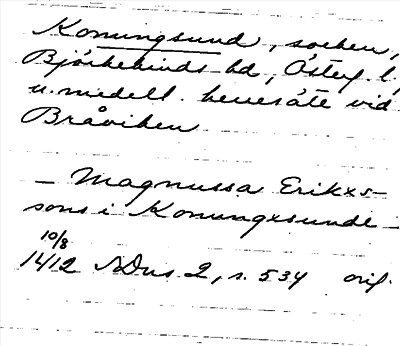 Konungsund, socken,
Björkekinds hd, Österg. l.
u. medelt. herresäte vid
Bråviken
— Magnussa Erikxs-
sons i Konungxsunde —
10/8
1412 SDns 2, s. 534 orig.